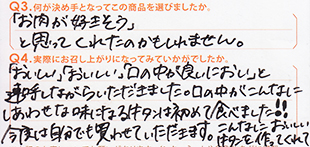 Q3.何が決め手となってこの商品を選びましたか。
「お肉が好きそう」
と思ってくれたのかもしれません。
Q4.実際にお召し上がりになってみていかがでしたか。
「おいしい」「おいしい」「口の中が良いにおい」と
連呼しながらいただきました。口の中がこんなに
しあわせな味になる牛タンは初めて食べました!!
今度は自分でも買わせていただきます。こんなにおいしい
牛タンを作ってくれて